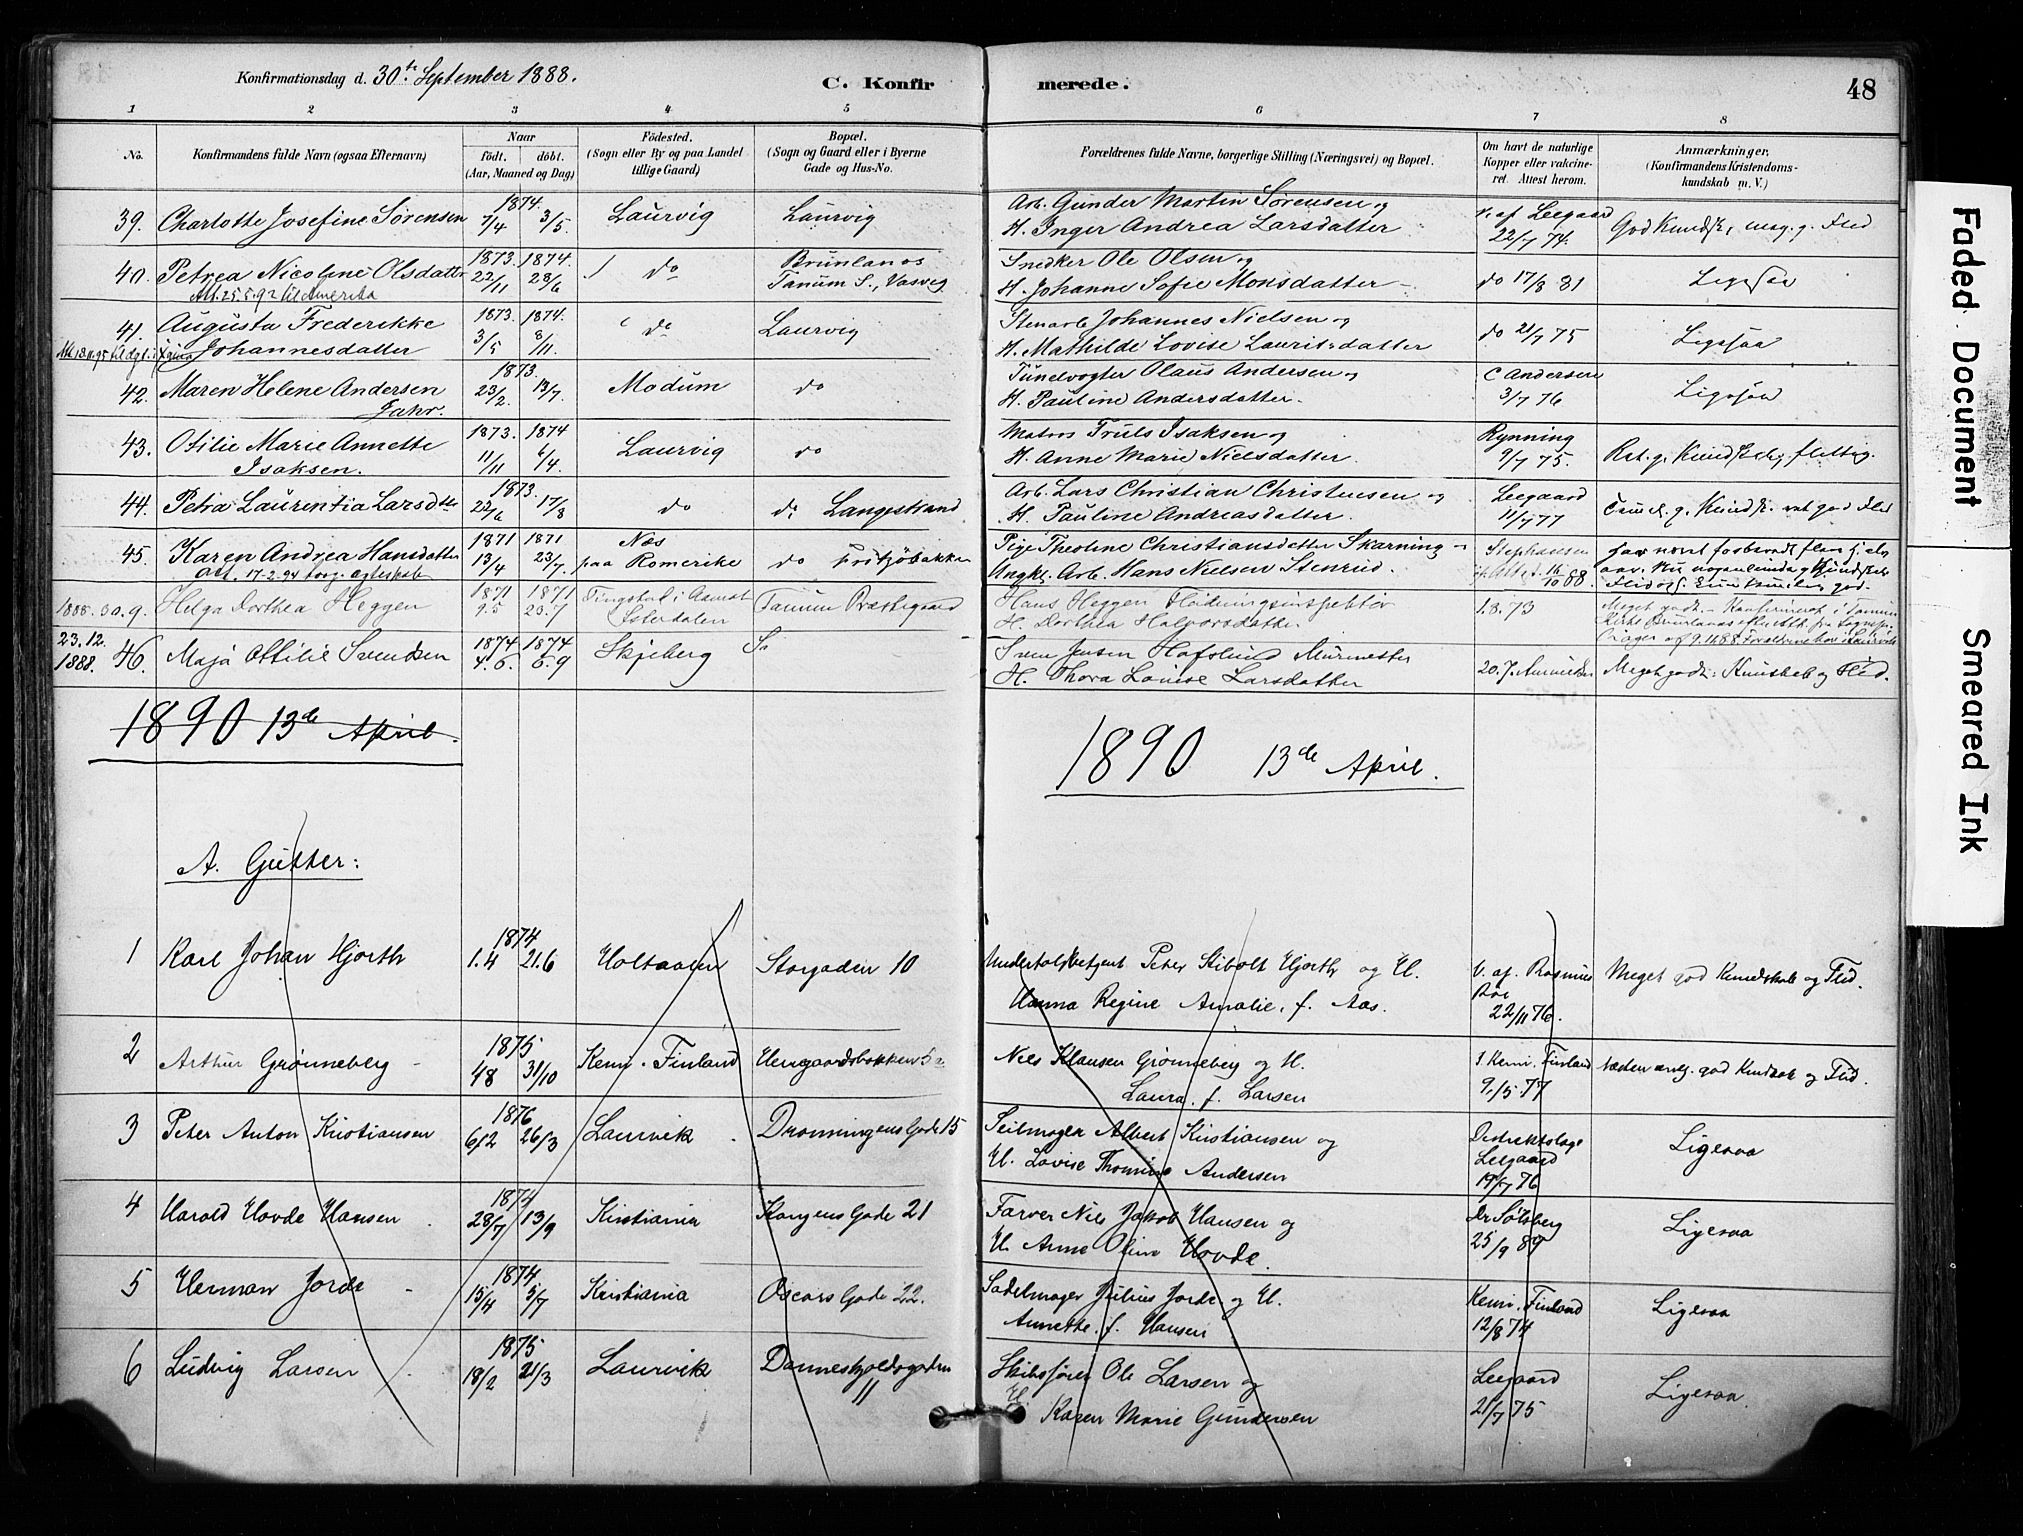 Konfirmationsdag d. 30te September 1888.
C. Konfirmerede.
48
1 2 3 4 5 6 7 8
No.
Konfirmandens fulde Navn (ogsaa Efternavn)
Naar
födt. döbt.
(Aar, Maaned og Dag)
Födested.
(Sogn eller By og paa Landet
tillige Gaard)
Bopæl.
(Sogn og Gaard eller i Byerne
Gade og Hus-No.
Forældrenes fulde Navne, borgerlige Stilling (Næringsvei) og Bopæl.
Om havt de naturlige
Kopper eller vakcine-
ret. Attest herom.
Anmærkninger,
(Konfirmandens Kristendoms-
kundskab m. V.)
39. Charlotte Josefine Sørensen 1874. 7/4 3/5 Laurvig Laurvig Arb. Gunder Martin Sørensen og
H. Inger Andrea Larsdatter v. af Leegaard 22/7 74.
40. Petrea Nicoline Olsdatter 1873. 22/11 1874. 28/6 do Brunlanes
Tanum S., Vasvig Snedker Ole Olsen og
H. Johanne Sofie Monsdatter do 17/8 81 Ligesaa
Att. 25.5.92 til Amerika
41. Augusta Frederikke
Johannesdatter 1873. 3/5 1874. 8/11. do Laurvig Stenarb Johannes Nielsen og
H. Mathilde Lovise Lauritsdatter do 21/7 75 Ligesaa
42. Maren Helene Andersen
Jahr. 1873. 23/2. 13/7. Modum do Tunelvogter Olaus Andersen og
H. Pauline Andersdatter. C Andersen 3/7 76 Ligesaa
43. Otilie Marie Annette
Isaksen. 1873. 11/11 1874 6/4. Laurvig do Matros Truls Isaksen og
H. Anne Marie Nielsdatter. Rynning 9/7 75.
44. Petra Laurentia Larsdtr 1873. 22/6 17/8 do do Langestrand Arb. Lars Christian Christensen og
H. Pauline Andreasdatter. Leegaard 11/7 77
45. Karen Andrea Hansdatter 1871 13/4 1871 23/7. Næs
paa Romerike do Fritzöbakken Pige Theoline Christiansdatter Skarning
Ungkl. Arb. Hans Nielsen Stenrud. Stephansen
Att. 17-2.94 borg. ægteskab
1888. 30.9. Helga Dorthea Heggen 1871 9.5 1871 23.7 Österdalen Tanum Præstegaard Hans Heggen
H. Dorthea Halvorsdatter 1.8.73
23.12.
1888. 46. Maja Ottilie Svendsen 1874 4.6. 1874 6.9 Skjeberg Do Sven Jensen Hafslund Murmester
H. Thora Louise Larsdatter Meget godt: Kunskab og Flid.
1890 13de April.
1890 13de April.
A. Gutter:
1 Karl Johan Hjorth 1874 1.4 21.6 Holtaalen Storgaden 10 Undertoldbetjent Peter Stibolt Hjorth og H.
Hanna Regine Amalie, f. Aas. V. af. Rasmus
Boe
22/11 76. Meget god Kundskab og Flid.
2 Arthur Grønneberg 1875 4/8 31/10 Kemi. Finland Herregaardsbakken 5 Nils Klausen Grønneberg og H.
Laura, f. Larsen I. Kemi. Finland
9/5 77 Næsten særlg. god Kundskab og Flid.
3 Peter Anton Kristiansen 1876 6/2 26/3 Laurvik Dronningens Gade 15 Seilmager Albert Kristiansen og
H. Lovise Thomine Andersen Distriktslæge
Leegaard
19/7 76 Ligesaa
4 Harald Hovde Hansen 1874 28/7 13/9 Kristiania Kongens Gade 21 Farver Nils Jakob Hansen og
H. Anne Oline Hovde. Dr Sölsberg
25/9 89 Ligesaa
5 Herman Jorde 1874 15/4 5/7 Kristiania Oscars Gade 22. Sadelmager Julius Jorde og H.
Annette, f. Hansen Kemi. Finland
12/8 74 Ligesaa
6 Ludvig Larsen 1875 18/2 21/3 Laurvik Danneskjoldsgaden
11 Skibsfører Ole Larsen og
H. Karen Marie Gundersen Leegaard
21/7 75 Ligesaa.
Faded Document
Smeared Ink